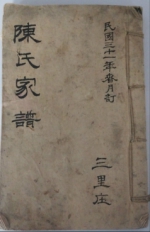 民國三十一年春月訂
陳氏家譜
三里庄